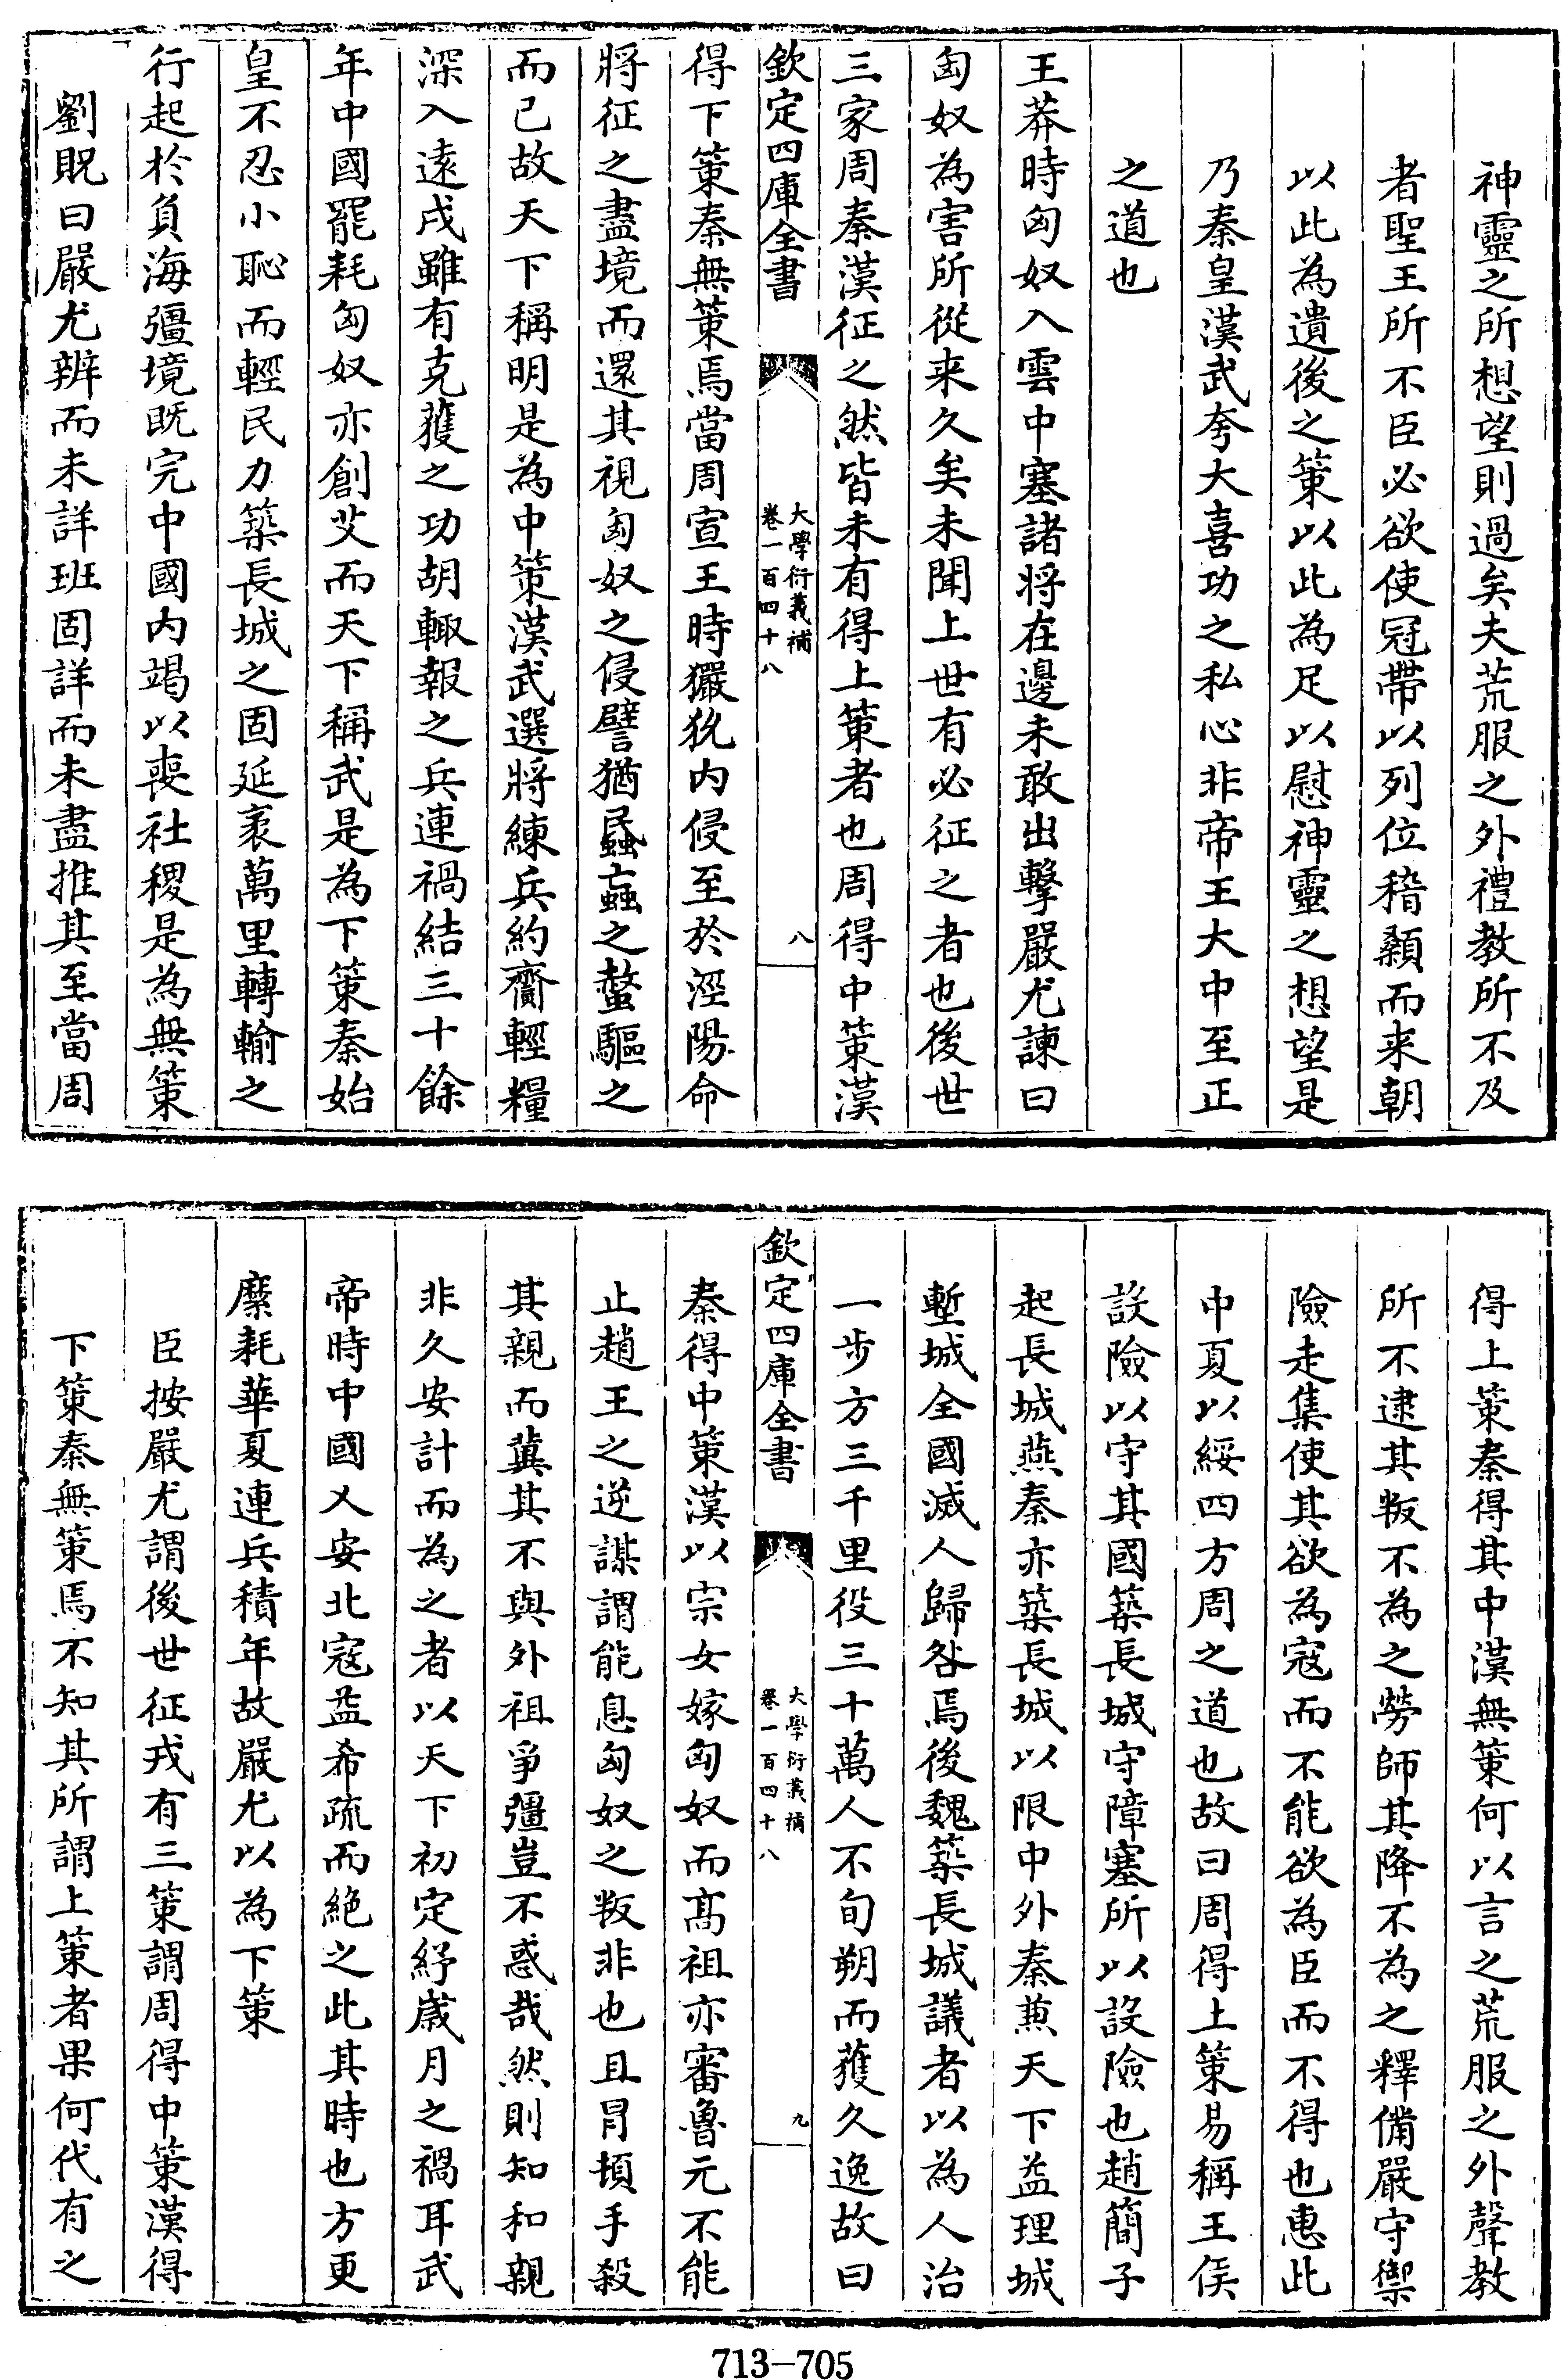 神靈之所想望則過矣夫荒服之外禮教所不及
者聖王所不臣必欲使冠帶以列位稽顙而来朝
以此為遺後之策以此為足以慰神靈之想望是
乃秦皇漢武夸大喜功之私心非帝王大中至正
之道也
王莽時匈奴入雲中塞諸將在邊未敢出擊嚴尤諫曰
匈奴為害所從来久矣未聞上世有必征之者也後世
三家周秦漢征之然皆未有得上策者也周得中策漢
欽定四庫全書
大學衍義補
卷一百四十八
八
得下策秦無策焉當周宣王時玁狁内侵至於涇陽命
將征之盡境而還其視匈奴之侵譬猶蟁蝱之螫驅之
而已故天下稱明是為中策漢武選將練兵約齎輕糧
深入逺戍雖有克獲之功胡輙報之兵連禍結三十餘
年中國罷耗匈奴亦創艾而天下稱武是為下策秦始
皇不忍小恥而輕民力築長城之固延袤萬里轉輸之
行起於負海彊境既完中國内竭以喪社稷是為無策
劉貺曰嚴尤辨而未詳班固詳而未盡推其至當周
得上策秦得其中漢無策何以言之荒服之外聲教
所不逮其叛不為之勞師其降不為之釋備嚴守禦
險走集使其欲為寇而不能欲為臣而不得也惠此
中夏以綏四方周之道也故曰周得上策易稱王侯
設險以守其國築長城守障塞所以設險也趙簡子
起長城燕秦亦築長城以限中外秦兼天下益理城
塹城全國滅人歸咎焉後魏築長城議者以為人治
一步方三千里役三十萬人不旬朔而獲久逸故曰
欽定四庫全書
大學衍義補
卷一百四十八
九
秦得中策漢以宗女嫁匈奴而髙祖亦審魯元不能
止趙王之逆謀謂能息匈奴之叛非也且冒頓手殺
其親而冀其不與外祖爭彊豈不惑哉然則知和親
非久安計而為之者以天下初定紓歲月之禍耳武
帝時中國乂安北寇益希疏而絶之此其時也方更
糜耗華夏連兵積年故嚴尤以為下策
臣按嚴尤謂後世征戎有三策謂周得中策漢得
下策秦無策焉不知其所謂上策者果何代有之
713-705